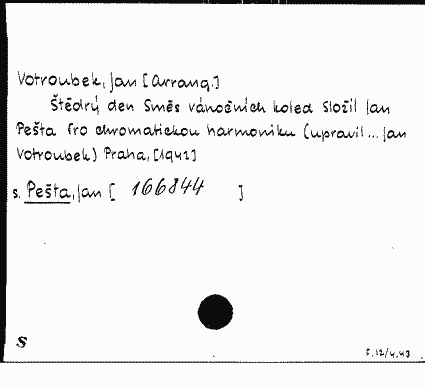 Votroubek, Jan [Arrang.]
Štědrý den Směs vánočních koled Složil Jan
Pešta Pro chromatickou harmoniku (upravil... Jan
Votroubek) Praha, [1941]
s. Pešta, Jan [ 166844 ]
S
5.12/4.43